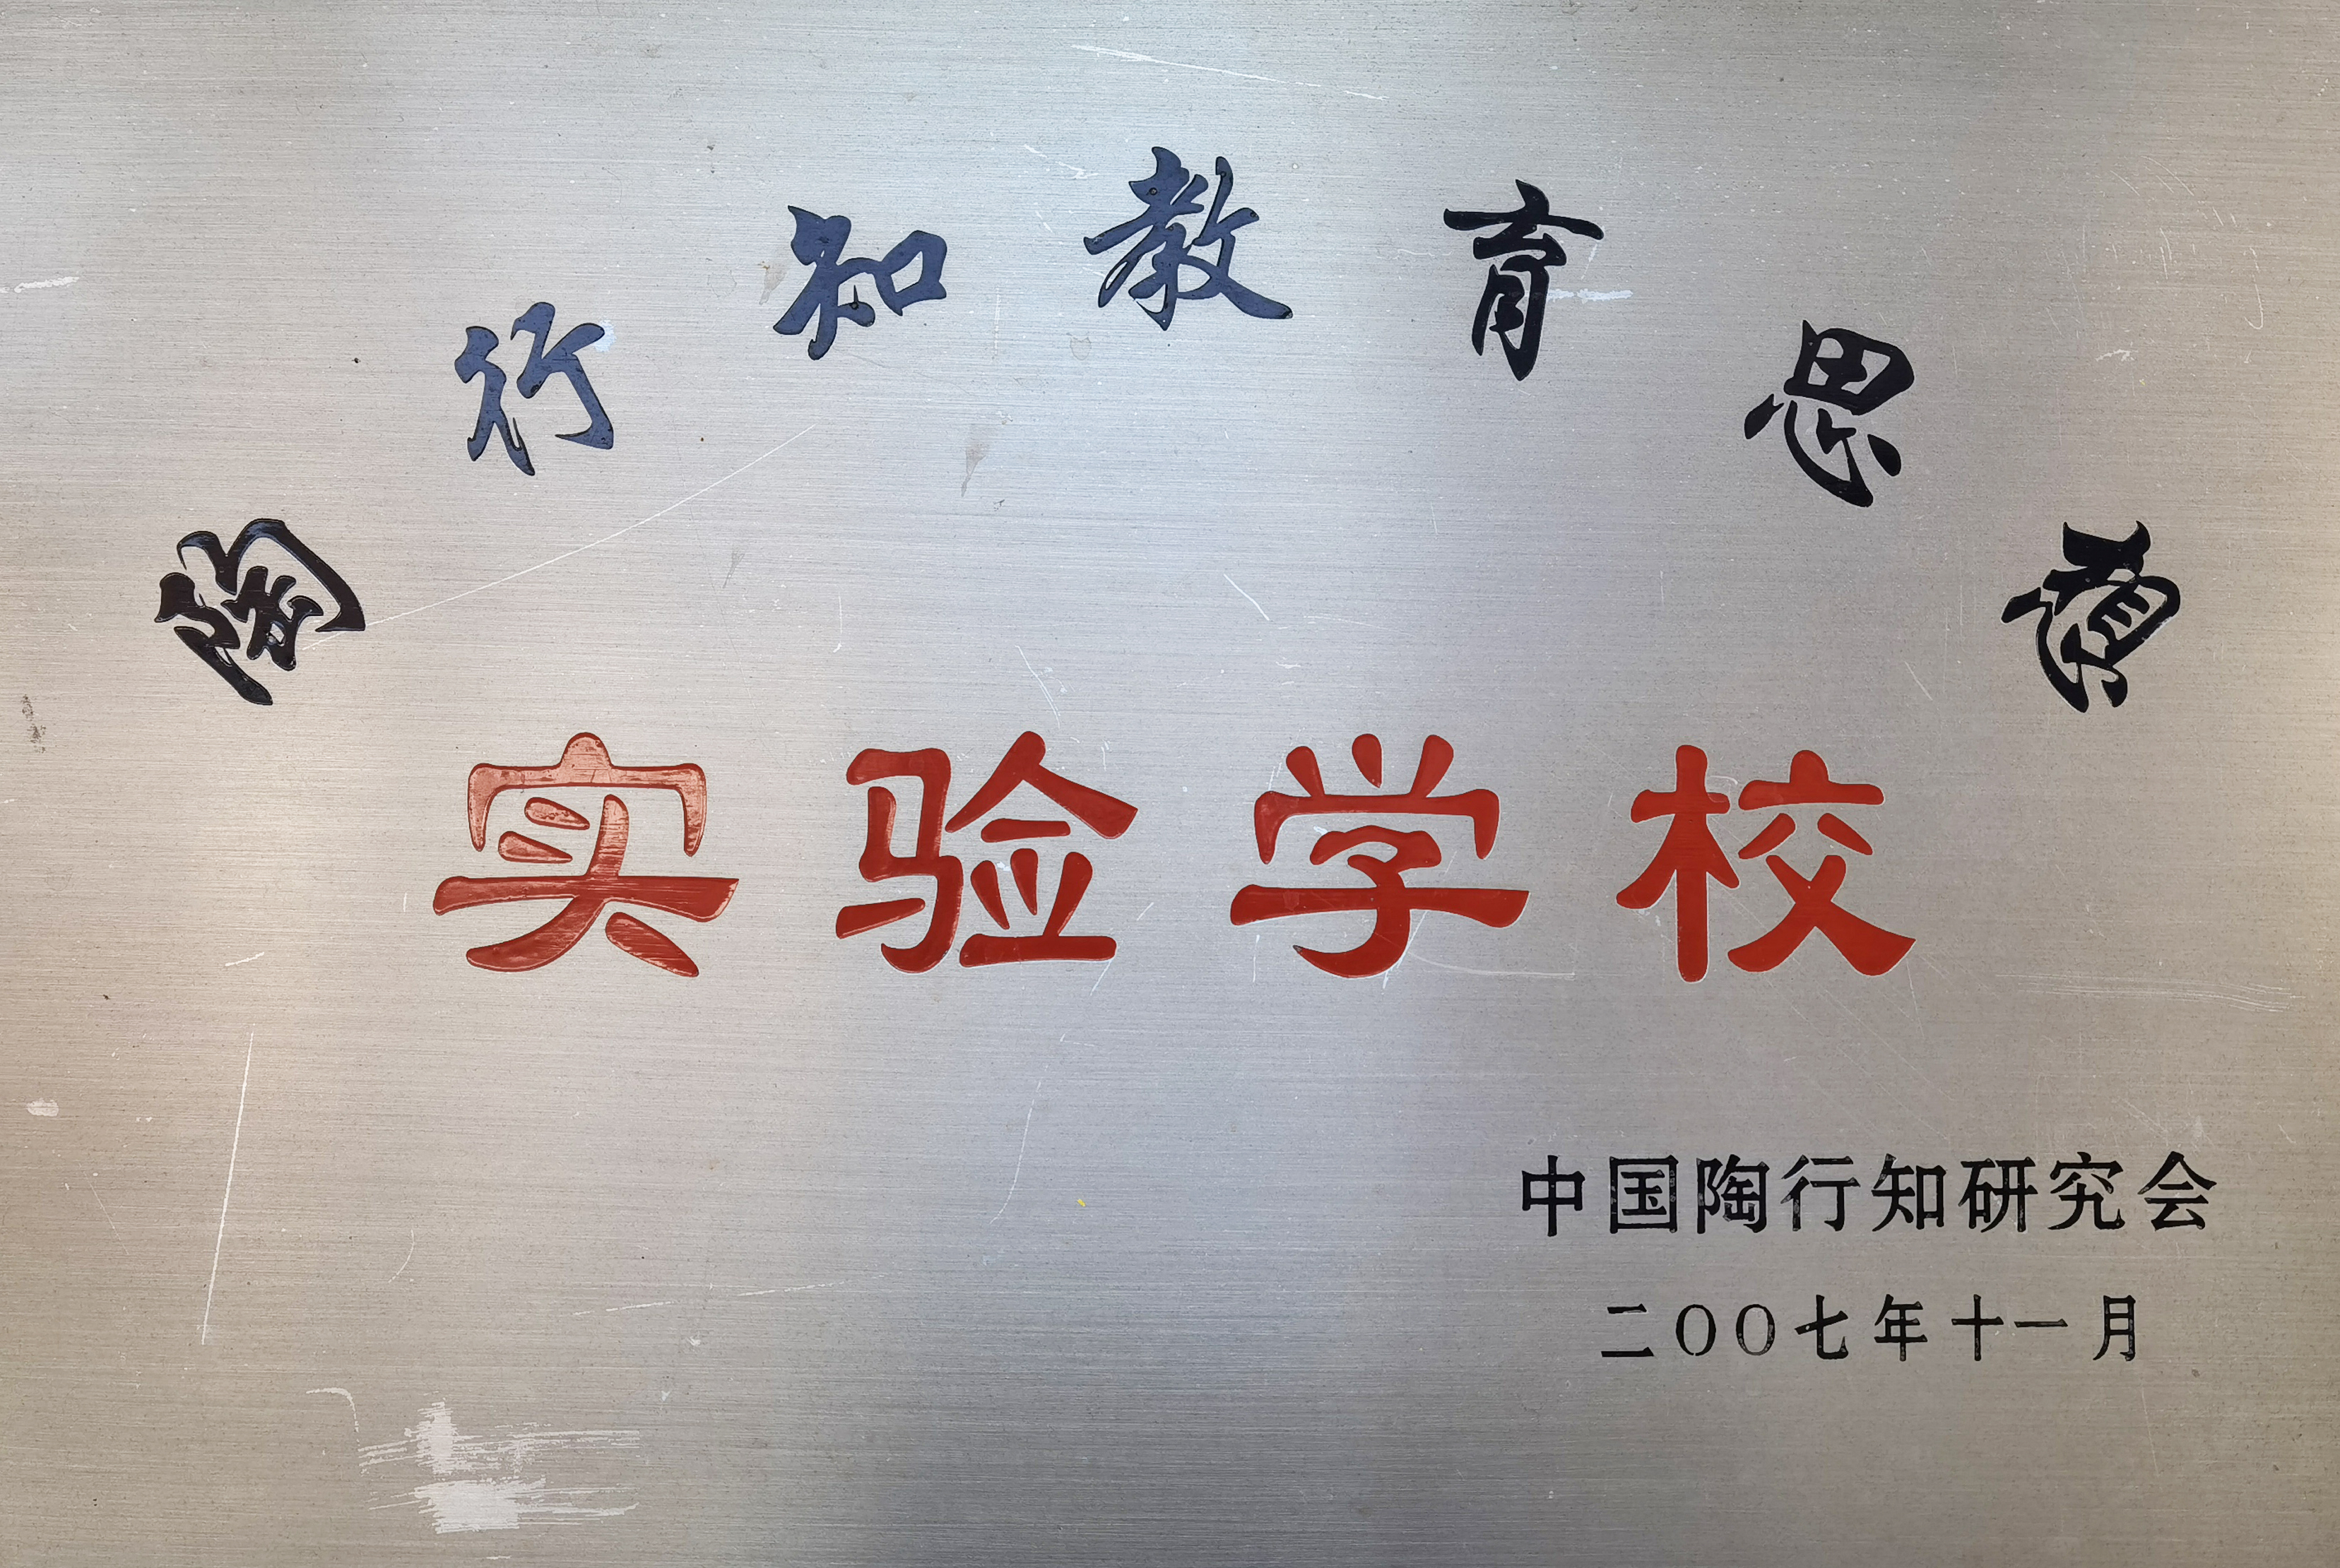 陶行知教育思想
实验学校
中国陶行知研究会
二〇〇七年十一月